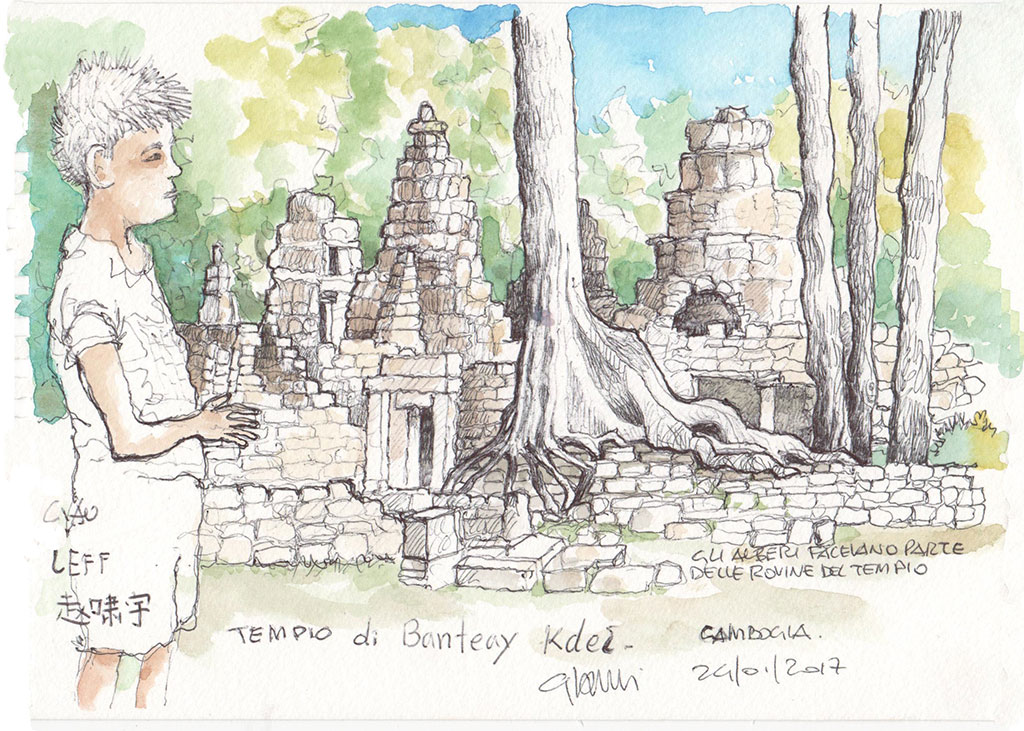 CIAO
LEFF
赵啸宇
GLI ALBERI FACEVANO PARTE
DELLE ROVINE DEL TEMPIO
TEMPIO di Banteay Kdei.
CAMBOGIA.
24/01/2017